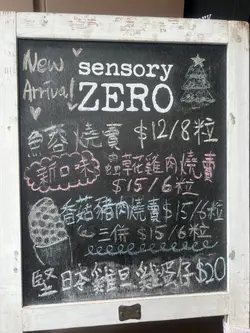 New
Arrival
sensory
ZERO
魚蓉燒賣 $12/8粒
新口味
蟲草花雞肉燒賣
$15/6粒
香菇豬肉燒賣 $15/6粒
三併 $15/6粒
日本雞旦雞蛋仔 $20